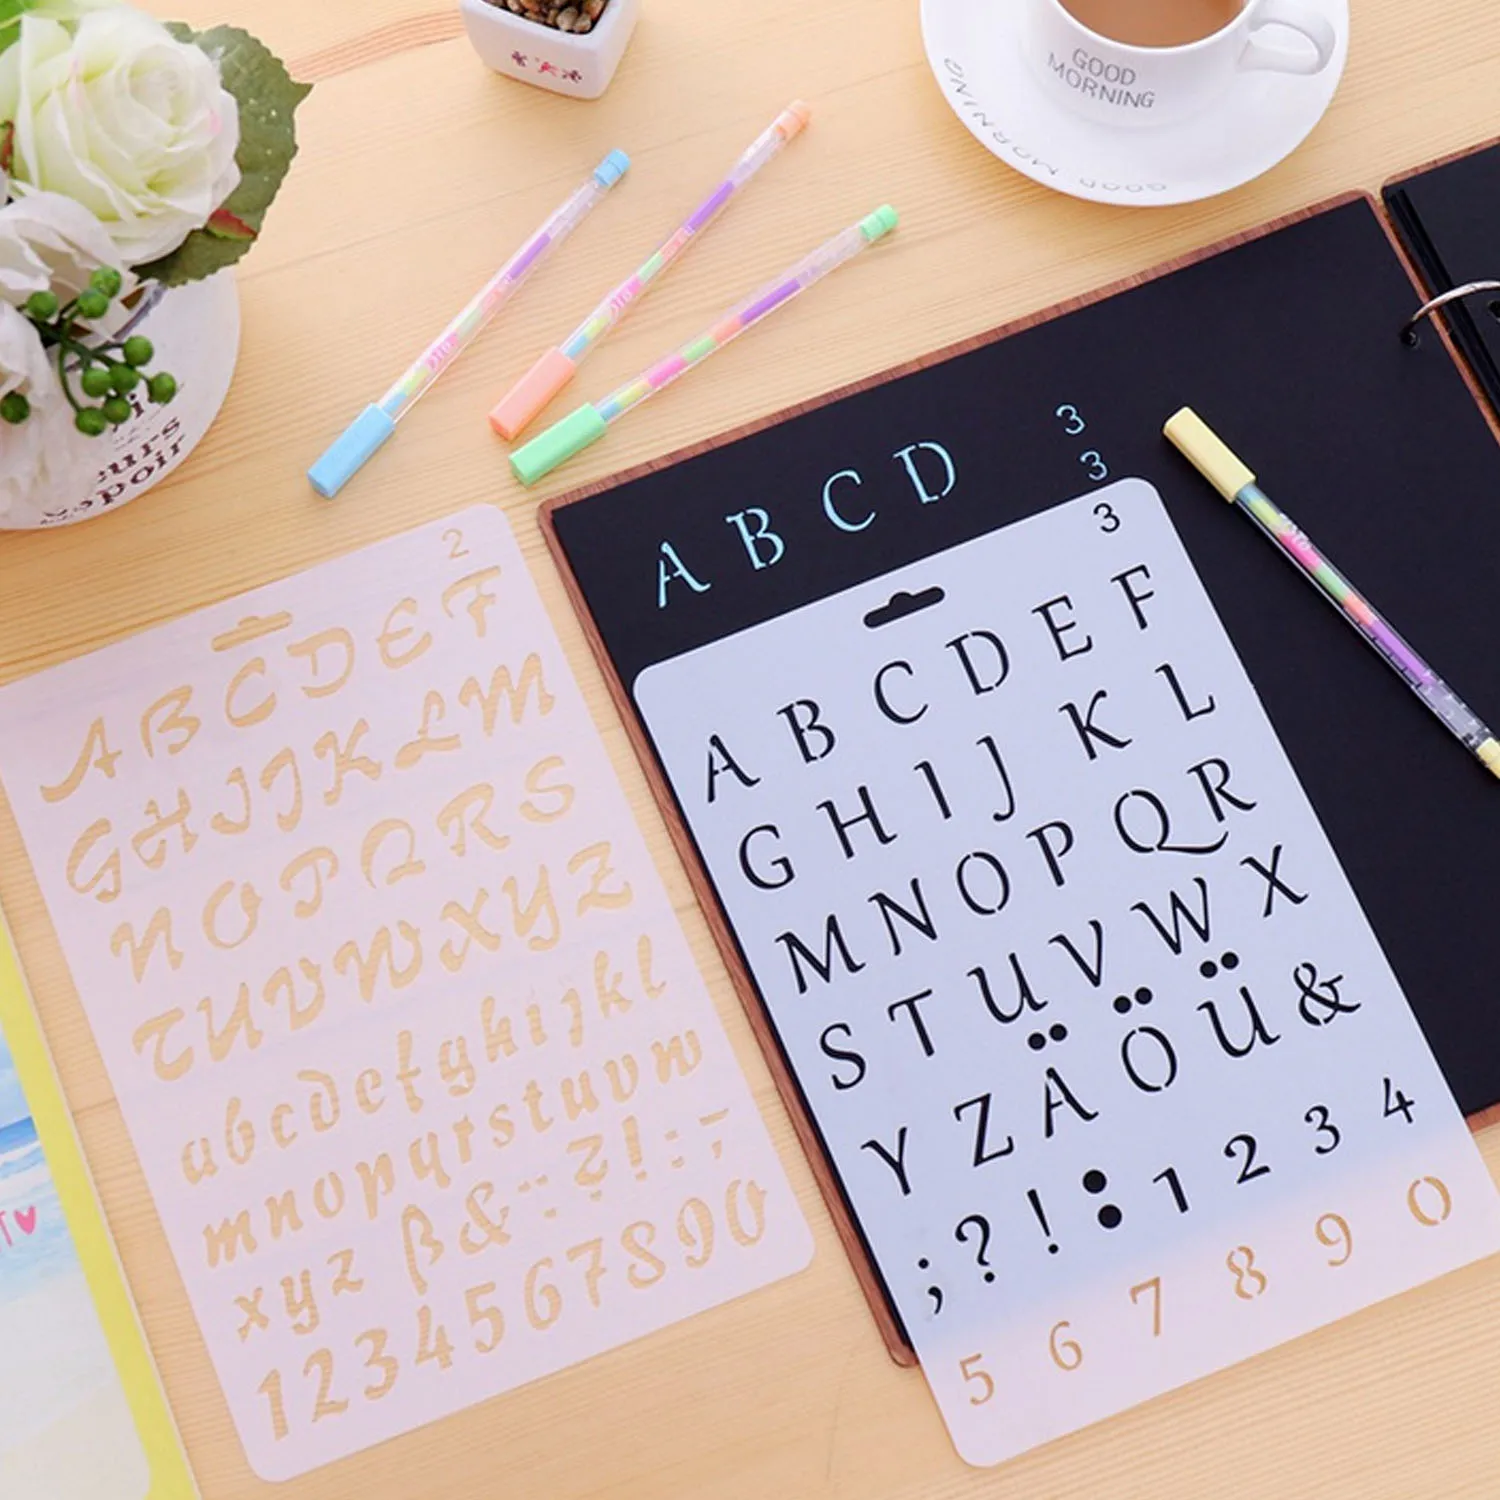 GOOD
MORNING
GOOD MORNING
A B C D
3
3
2
A B C D E F
G H I J K L M
N O P Q R S
T U V W X Y Z
a b c d e f g h i j k l
m n o p q r s t u v w
x y z β & ¨ ? ! : -
1 2 3 4 5 6 7 8 9 0
3
A B C D E F
G H I J K L
M N O P Q R
S T U V W X
Y Z Ä Ö Ü &
; ? ! : 1 2 3 4
5 6 7 8 9 0